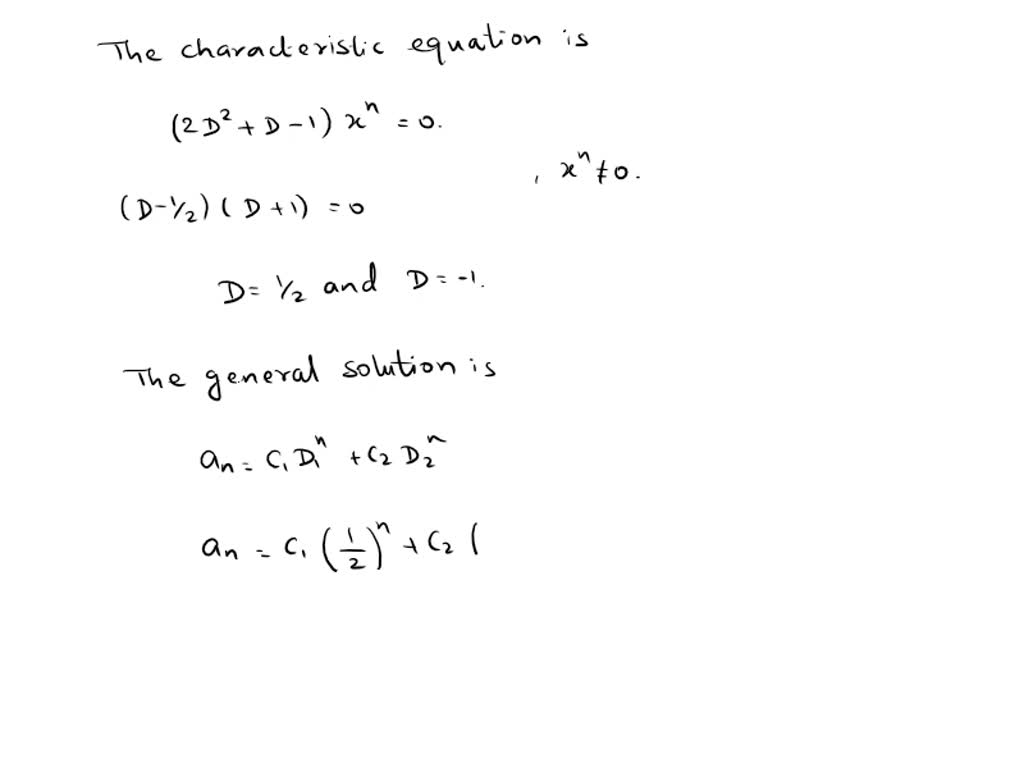 The characteristic equation is
(2D² + D - 1) xⁿ = 0.
, xⁿ ≠ 0.
(D-1/2) ( D + 1) = 0
D = 1/2 and D = -1.
The general solution is
aₙ = C₁ D₁ⁿ + C₂ D₂ⁿ
aₙ = C₁ (1/2)ⁿ + C₂ (